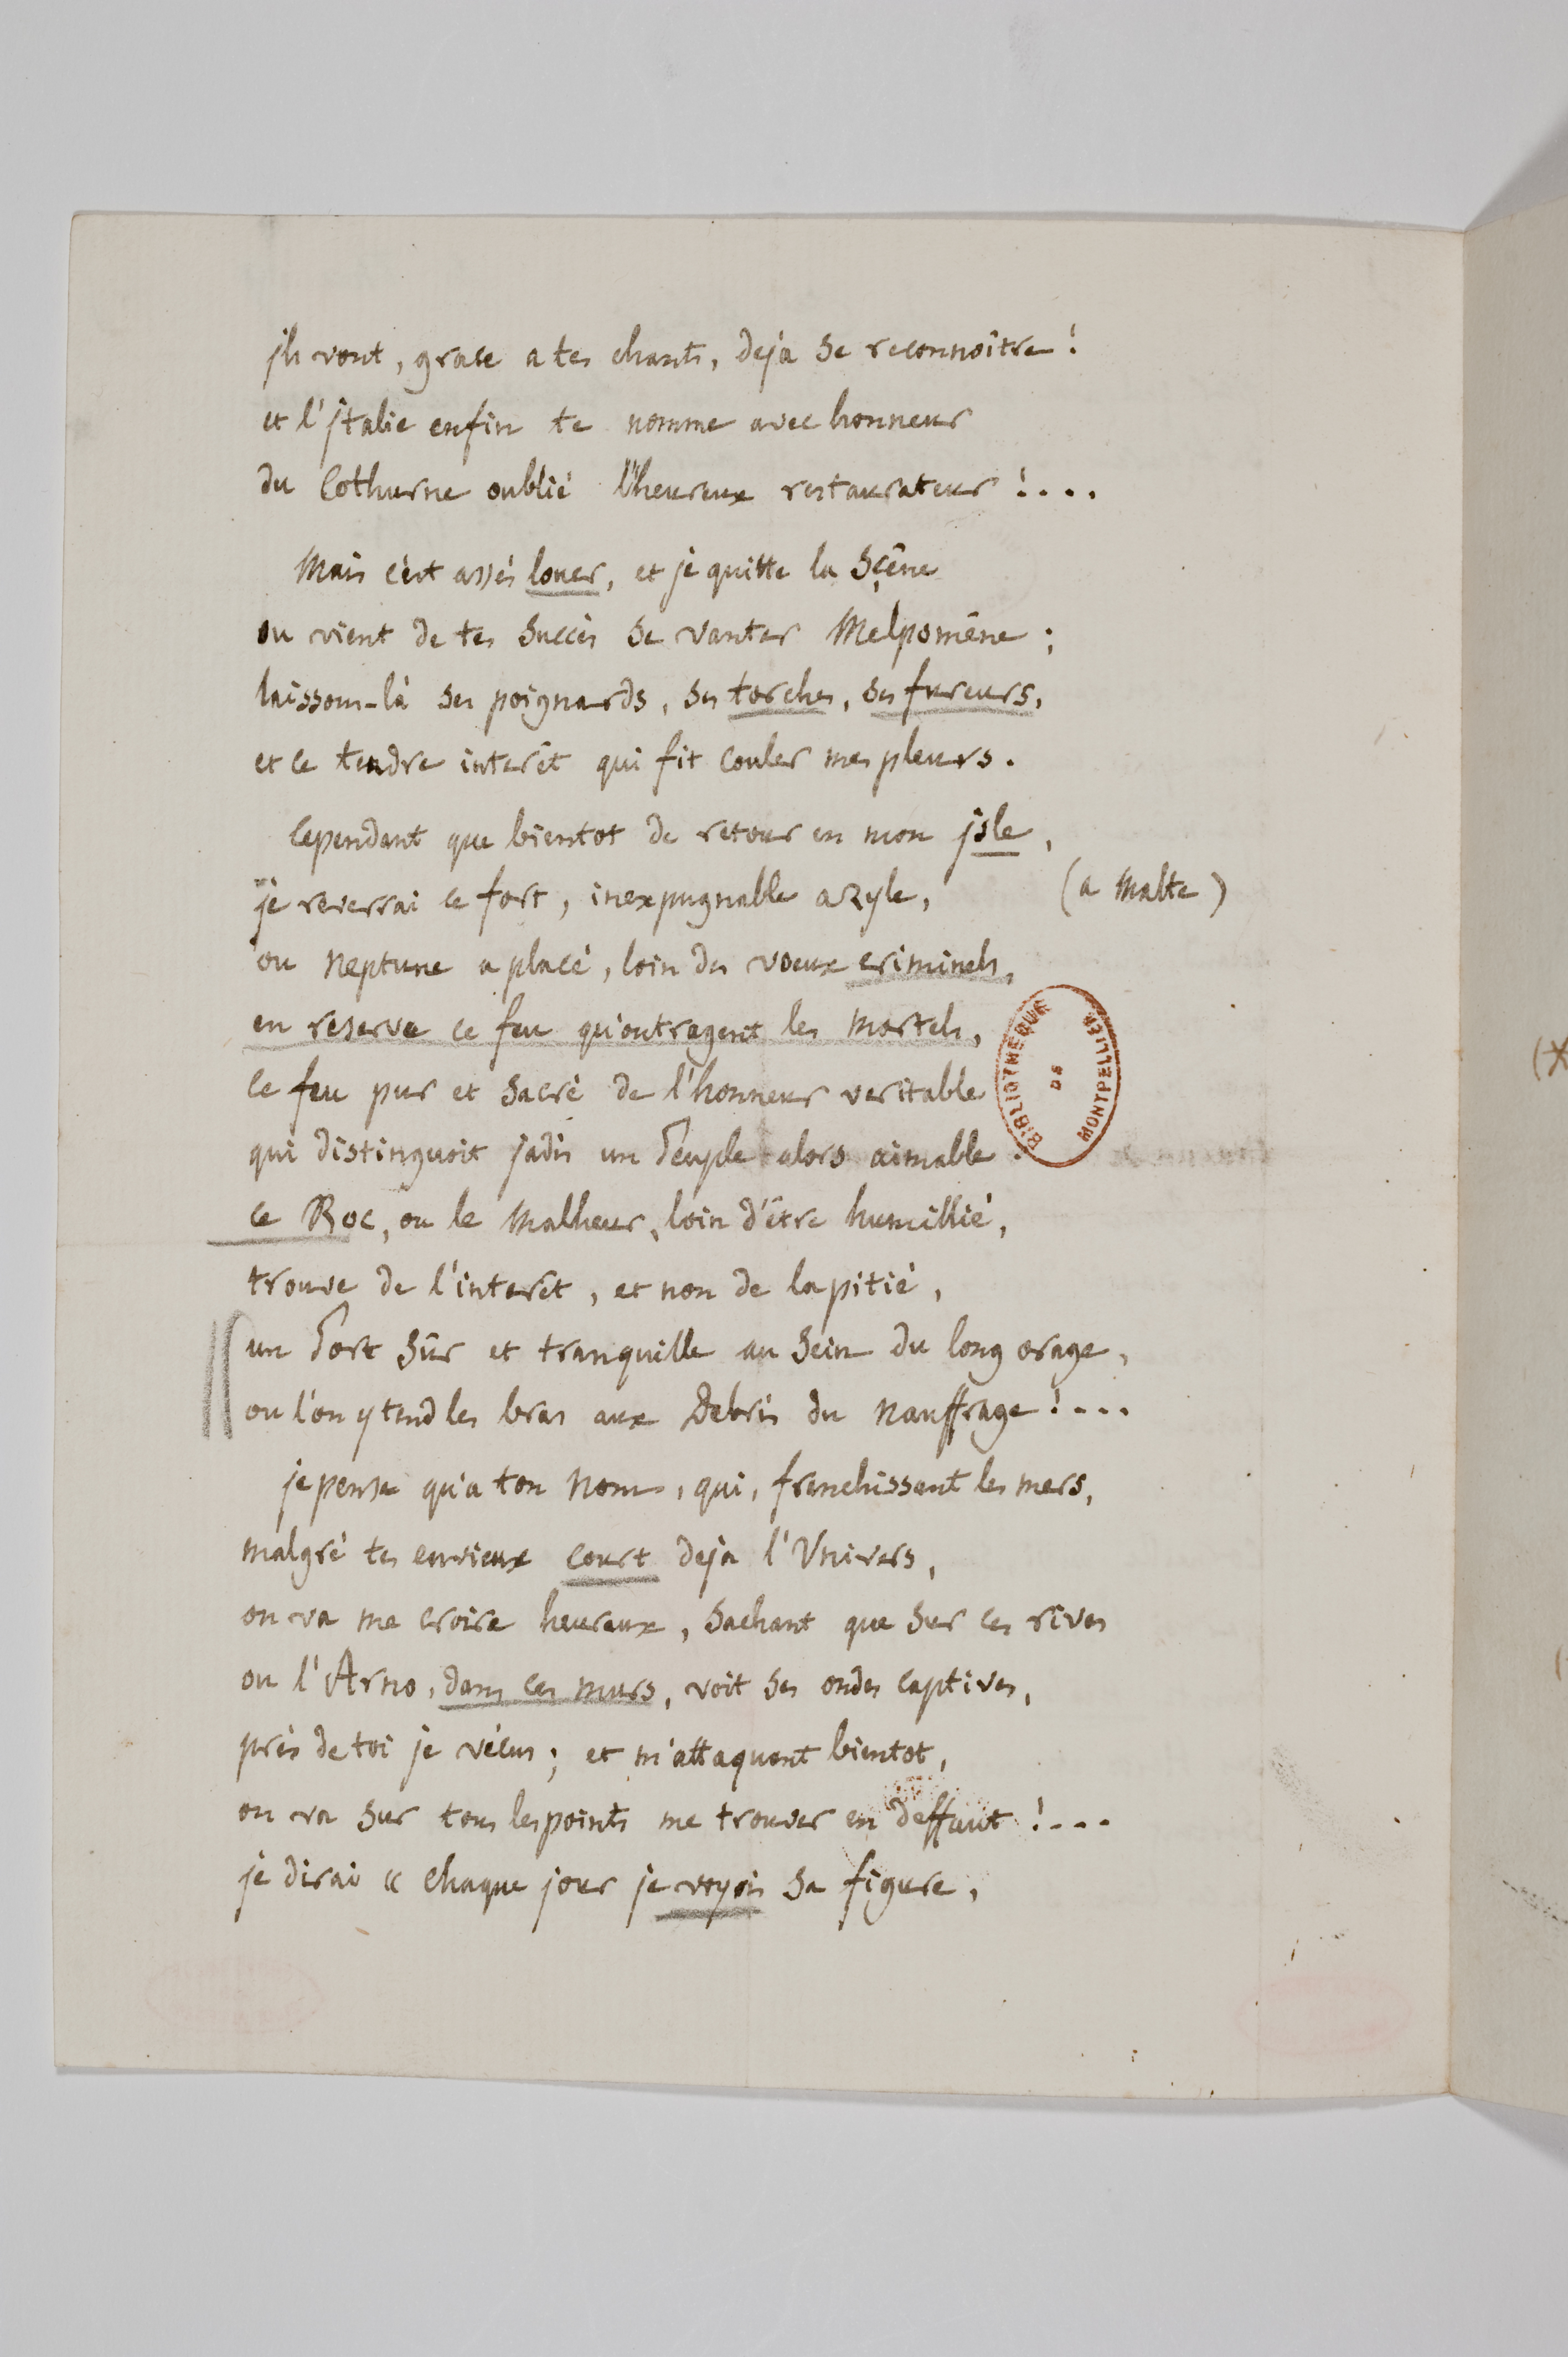 jls vont, grace a tes chants, deja se reconnoître !
et l'jtalie enfin te nomme avec honneur
du Cothurne oublié l'heureux restaurateur !....
Mais c'est assés louer, et je quitte la Sçêne
ou vient de tes succès se vanter Melpomène ;
laissons-là ses poignards, ses torches, ses fureurs,
et ce tendre interêt qui fit couler mes pleurs.
Cependant que bientot de retour en mon jsle,
je reverrai ce fort, inexpugnable azyle, (a Malte)
ou Neptune a placé, loin des voeux criminels,
en reserve ce feu qu'outragent les mortels,
ce feu pur et sacré de l'honneur veritable
qui distinguoit jadis un Peuple alors aimable.
ce Roc, ou le Malheur, loin d'être humillié,
trouve de l'interêt, et non de la pitié,
un Port sûr et tranquille au sein du long orage,
ou l'on y tend les bras aux Debris du Nauffrage !....
je pense qu'a ton Nom, qui, franchissant les mers,
malgré tes envieux court deja l'Univers,
on va me croire heureux, sachant que sur ces rives
ou l'Arno, dans ces murs, voit ses ondes captives,
près de toi je vécus ; et m'attaquant bientot,
on va sur tous les points me trouver en deffaut !....
je dirai « chaque jour je voyois sa figure,
BIBLIOTHEQUE
DE
MONTPELLIER
(X
(